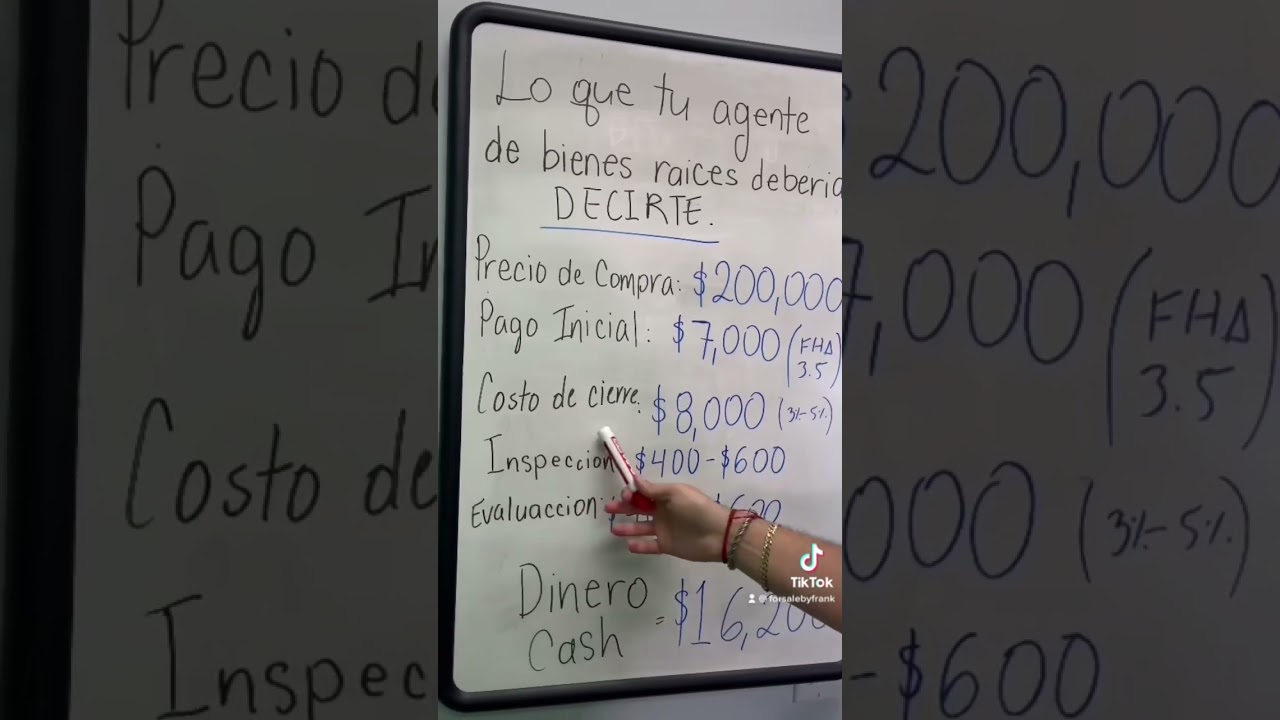 Lo que tu agente
de bienes raices deberia
DECIRTE.
Precio de Compra: $200,000
Pago Inicial: $7,000 (FHA
3.5
Costo de cierre: $8,000 (3%-5%)
Inspeccion $400-$600
Evaluaccion: $600
Dinero
Cash = $16,200
TikTok
@forsalebyfrank
Precio de
$200,000
Pago In
7,000 (FHA
3.5
Costo de
000 (3%-5%)
Inspec
-$600